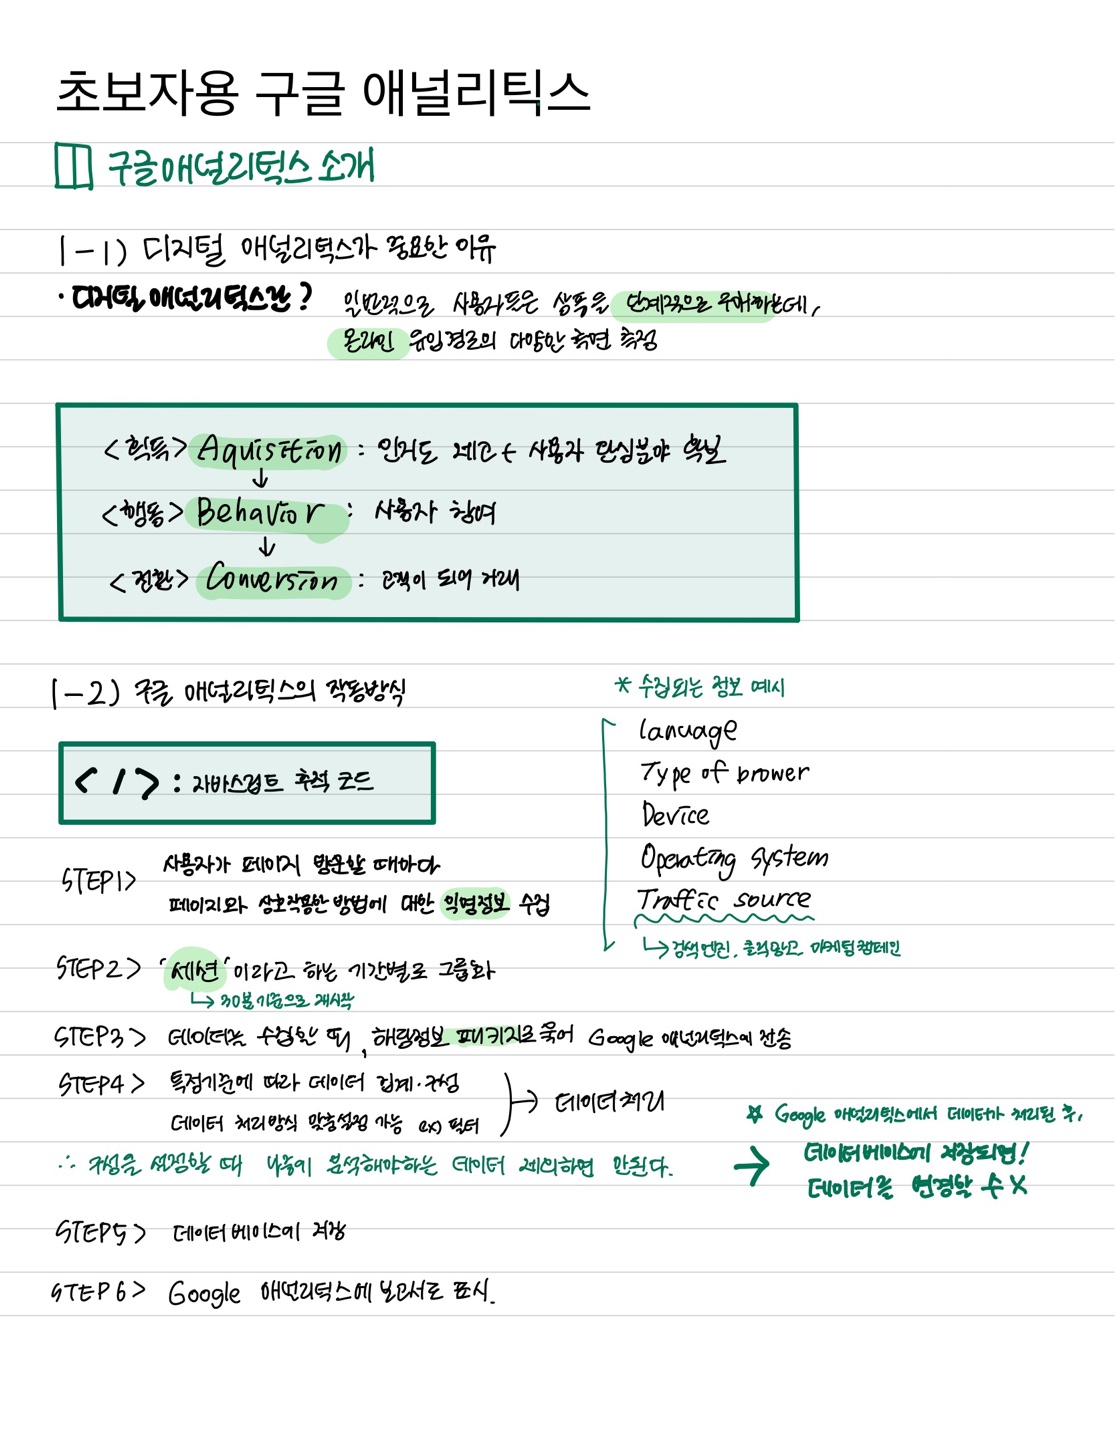 초보자용 구글 애널리틱스
구글애널리틱스 소개
1-1) 디지털 애널리틱스가 중요한 이유
· 디지털 애널리틱스란? 일반적으로 사용자들은 상품을 단계적으로 구매하는데,
온라인 유입경로의 다양한 측면 측정
<획득> Aquisition : 인지도 제고 + 사용자 관심분야 확보
↓
<행동> Behavior : 사용자 참여
↓
<전환> Conversion : 고객이 되어 거래
1-2) 구글 애널리틱스의 작동방식
</> : 자바스크립트 추적 코드
* 수집되는 정보 예시
lanuage
Type of brower
Device
Operating system
Traffic source
↳ 검색엔진, 클릭광고, 마케팅캠페인
STEP1> 사용자가 페이지 방문할 때마다
페이지와 상호작용한 방법에 대한 익명정보 수집
STEP2> '세션'이라고 하는 기간별로 그룹화
↳ 30분기준으로 재시작
STEP3> 데이터를 수집할 때, 해당정보 패키지로 묶어 Google 애널리틱스에 전송
STEP4> 특정기준에 따라 데이터 집계·구성
데이터 처리방식 맞춤설정 가능 ex) 필터
→ 데이터처리
∴ 구성을 설정할 때 나중에 분석해야하는 데이터 제외하면 안된다.
☆ Google 애널리틱스에서 데이터가 처리된 후,
→ 데이터베이스에 저장되면!
데이터를 변경할 수 X
STEP5> 데이터베이스에 저장
STEP6> Google 애널리틱스에 보고서로 표시.